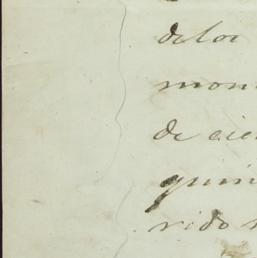 de los
mon
de cie
quin
rido